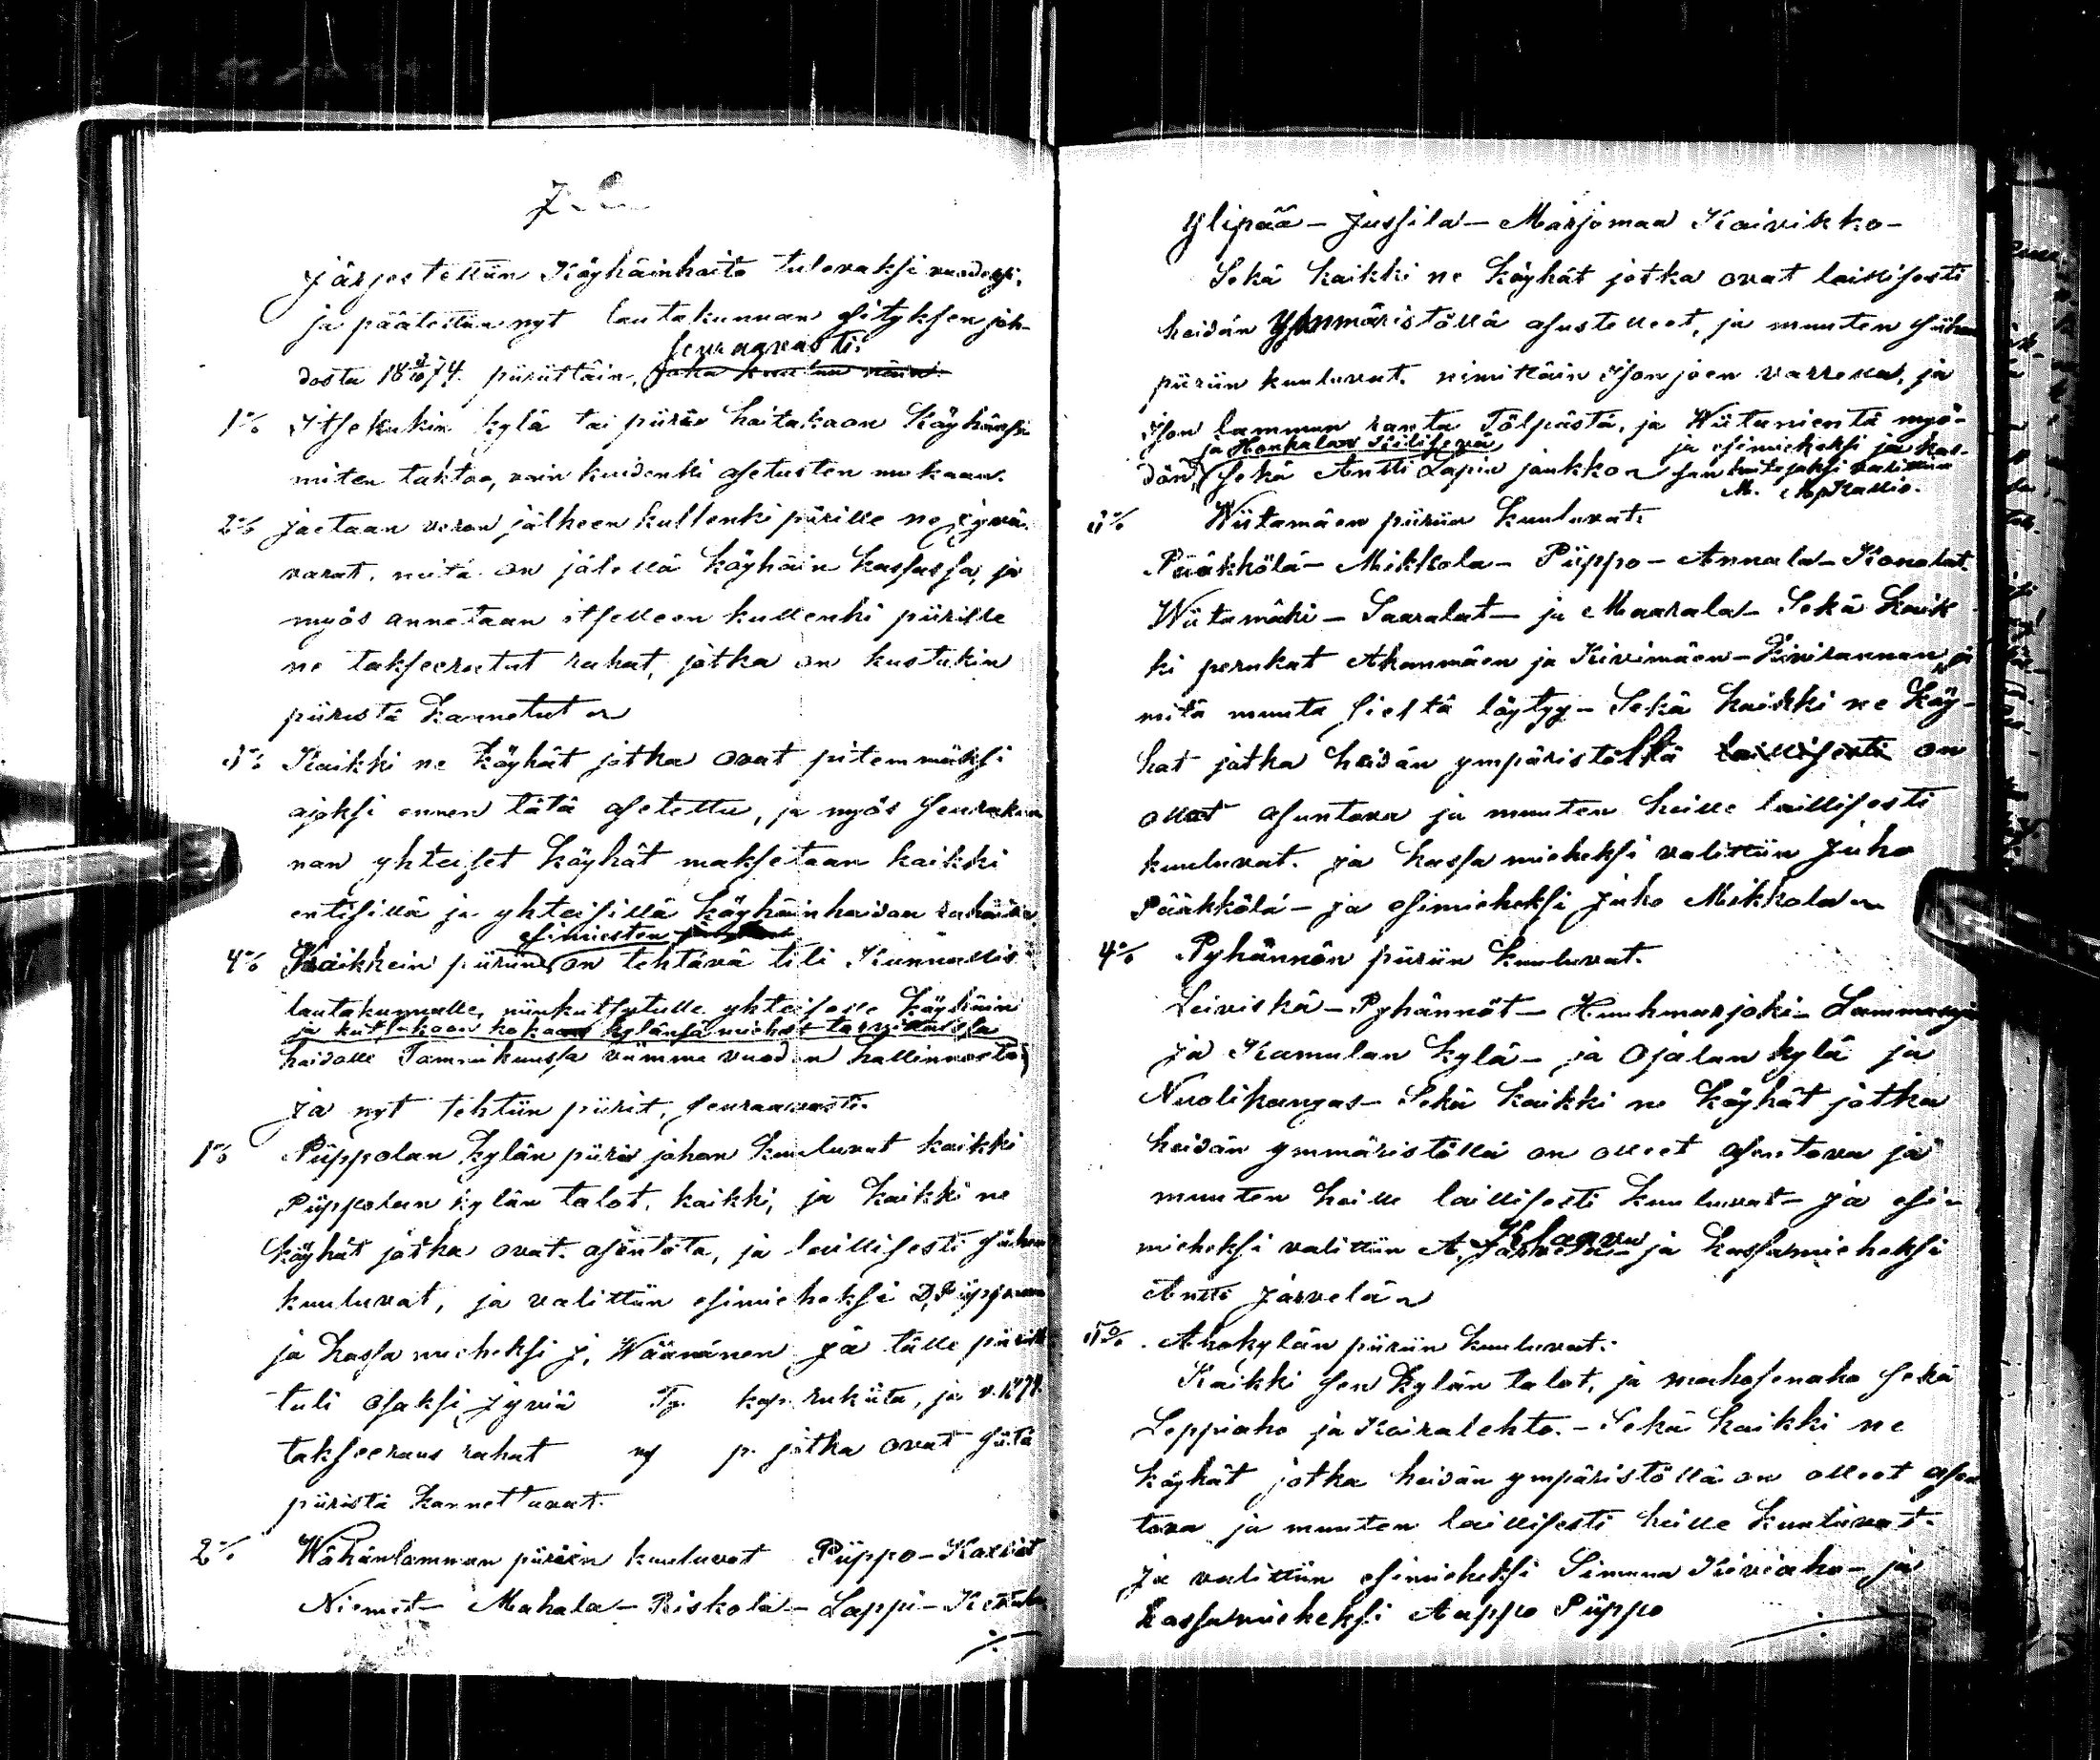 Järjestettiin Köyhäinhoito tulevaksi vuodeksi,
ja päätettiin nyt lautakunnan esityksen joh-
seuraavasti:
dosta 18 4/10 74. piirittäin,
1o/o Itsekukin kylä tai piiriä hoitakoon Köyhänsä
miten tahtoo, vain kuidenki asetusten mukaan.
2o/o Jaetaan veron jälkeen kullenki piirille ne jyvä-
varat, mitä on jälellä köyhäin kassassa, ja
myös annetaan itselleen kullenki piirille
ne takseeratut rahat, jotka on kustakin
piiristä kannetut
3o/o Kaikki ne köyhät jotka ovat pitemmäksi
ajaksi ennen tätä asetettu, ja myös seurakun
nan yhteiset köyhät maksetaan kaikki
entisillä ja yhteisillä köyhäinhoidon rahoilla
esimiesten
4o/o Kaikkein piirein on tehtävä tili Kunnallis
lautakunnalle, niinkutsutulle yhteiselle köyhäin
ja kutsukoon kokoon kylänsä miehet tarvittaissa
hoidolle Tammikuussa viimme vuoden hallinnosta
Ja nyt tehtiin piirit, seuraavasti.
1o/o Piippolan kylän piiriä johon kuuluvat kaikki
Piippolan kylän talot, kaikki, ja kaikki ne
köyhät jotka ovat asuntota, ja laillisesti siihen
kuuluvat, ja valittiin esimieheksi D. Piippo
ja kassa mieheksi J. Wäänänen Ja tälle piirille
tuli osaksi jyviä Ty. kap. rukiita, ja v. 1874
takseeraus rahat mf p. jotka ovat siitä
piiristä kannettavat.
2o/o Wähänlamman piiriin kuuluvat Piippo - Karvit
Niemit - Mahala - Riskola - Lappi - Kettula
Ylipää - Jussila - Marjomaa Kaivikko -
Sekä kaikki ne köyhät jotka ovat laillisesti
heidän Ymmäristöllä asustelleet, ja muuten siihen
piiriin kuuluvat. nimittäin Ison joen varrella, ja
Ison lamman ranta Tölpästä, ja Wiitanientä myö-
ja Honkalan ja esimieheksi ja kas-
dän, sekä Antti Lapin joukkon san hoitajaksi valittiin
M. Mpkallio.
3o/o Wiitamäen piiriin kuuluvat.
Pääkkölä - Mikkola - Piippo - Annala - Konolat.
Wiitamäki - Saaralat - ja Maarala - Sekä kaik
ki perukat Ahonmäen ja Kivimäen - Kivirannan, ja
mitä muuta sieltä löytyy - Sekä kaikki ne köy-
hät jotka heidän ympäristöllä laillisesti on
ollut asuntova ja muuten heille laillisesti
kuuluvat. Ja kassa mieheksi valittiin Juho
Pääkkölä - ja esimieheksi Juho Mikkola
4o/o Pyhännön piiriin kuuluvat.
Leiviskä - Pyhännöt - Huuhmarjoki -
ja Kamulan kylä - ja Ojalan kylä ja
Nuolikangas - Sekä kaikki ne köyhät jotka
heidän ymmäristöllä on olleet asuntova ja
muuten heille laillisesti kuuluvat - Ja esi-
mieheksi valittiin A. ja kassamieheksi
Antti Järvelä
5o/o Ahokylän piiriin kuuluvat.
Kaikki sen kylän talot, ja mahosenaho sekä
Leppiaho ja Kairalehto. - Sekä kaikki ne
köyhät jotka heidän ympäristöllä on olleet asun
tova ja muuten laillisesti heille kuuluvat.
Ja valittiin esimieheksi Simuna Kiviaho - ja
kassamieheksi Aappo Piippo